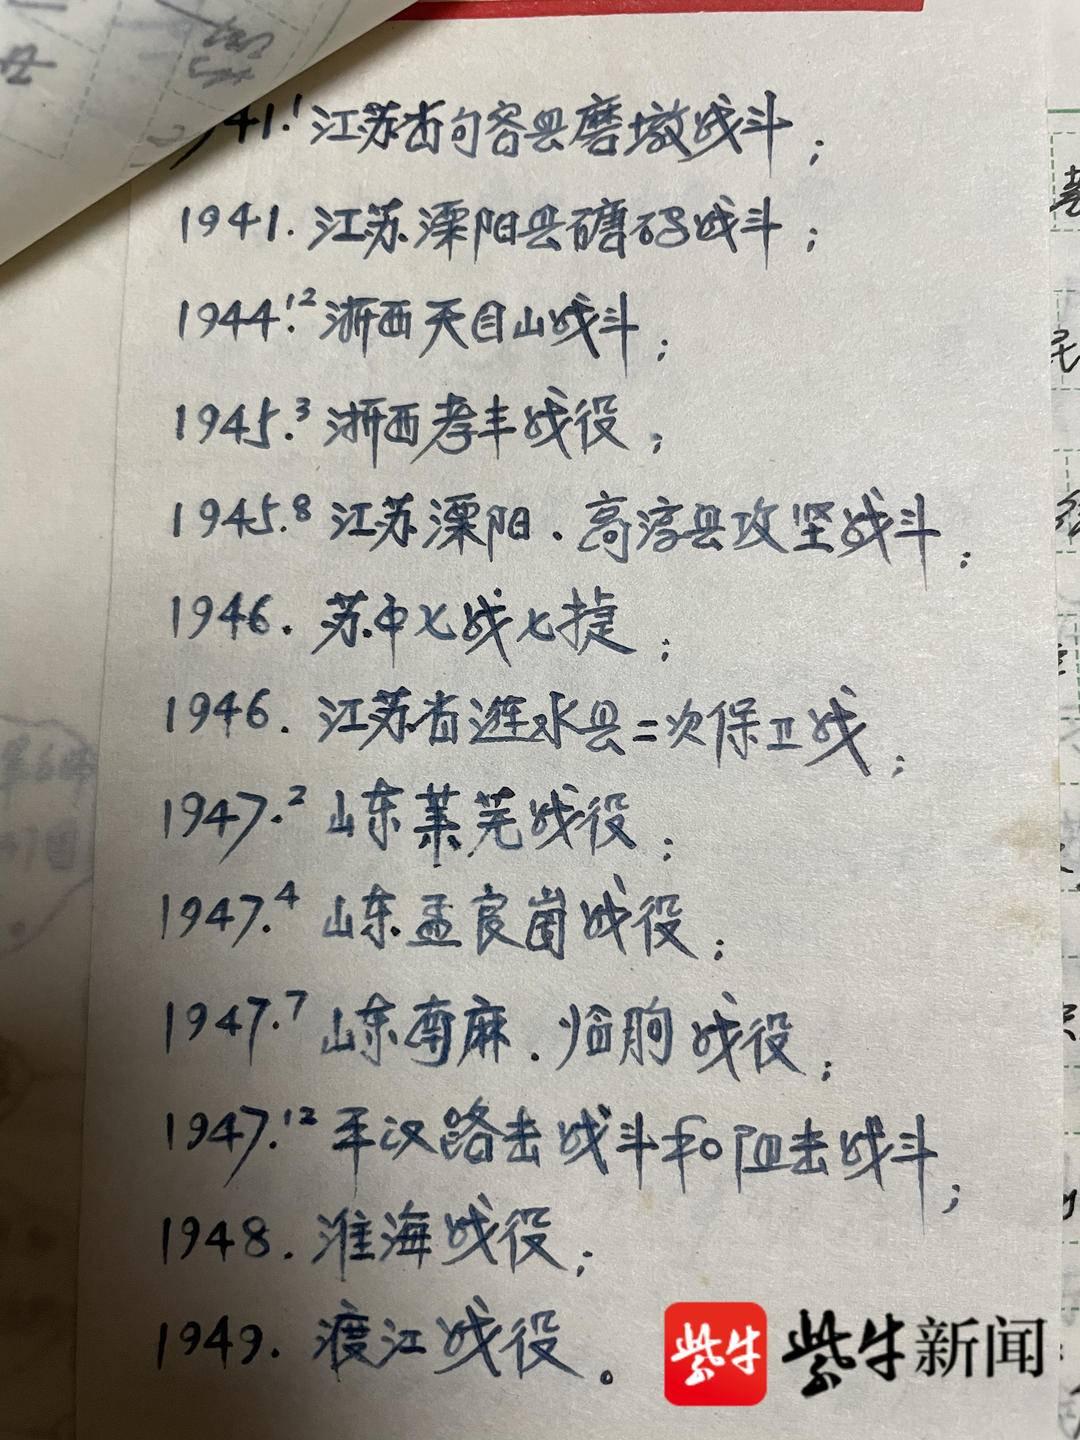 941.1 江苏省句容县磨墩战斗；
1941. 江苏溧阳县磄碯战斗；
1944.12 浙西天目山战斗；
1945.3 浙西孝丰战役；
1945.8 江苏溧阳．高淳县攻坚战斗；
1946. 苏中七战七捷；
1946. 江苏省涟水县二次保卫战；
1947.2 山东莱芜战役；
1947.4 山东孟良崮战役；
1947.7 山东南麻．临朐战役；
1947.12 平汉路击战斗和阻击战斗；
1948. 淮海战役；
1949. 渡江战役。
紫牛 紫牛新闻